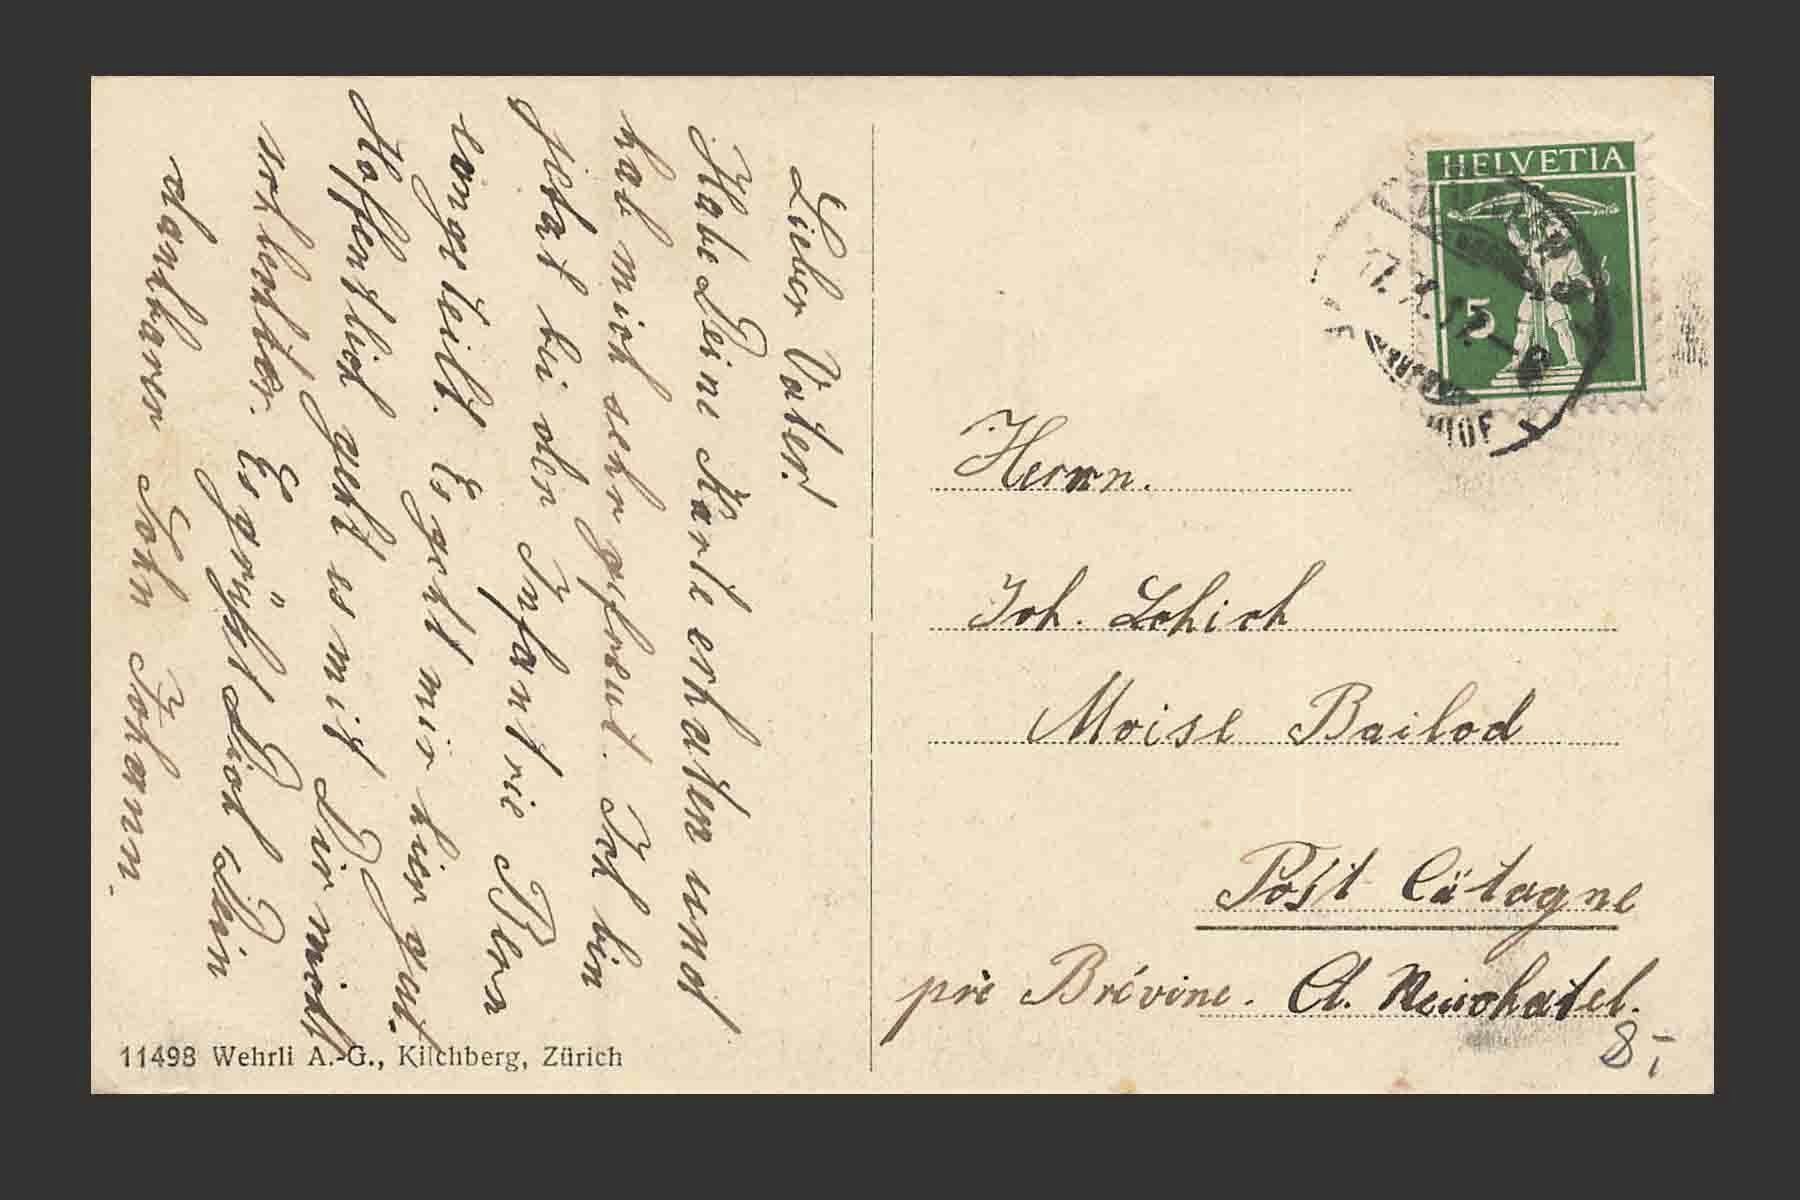 Lieber Vater!
Habe Deine Karte erhalten und
hab mich sehr gefreut. Ich bin
jetzt bei der Infantrie
eingeteilt. Es geht mir hier gut.
Hoffentlich geht es mit Dir nicht
schlechter. Es grüßt Dich Dein
dankbarer Sohn Johann.
11498 Wehrli A.-G., Kilchberg, Zürich
HELVETIA
5
Herrn.
Joh. Schich
Moise Bailod
Post Cätagne
prè Brévine. Ct. Neuchatel.
8,-